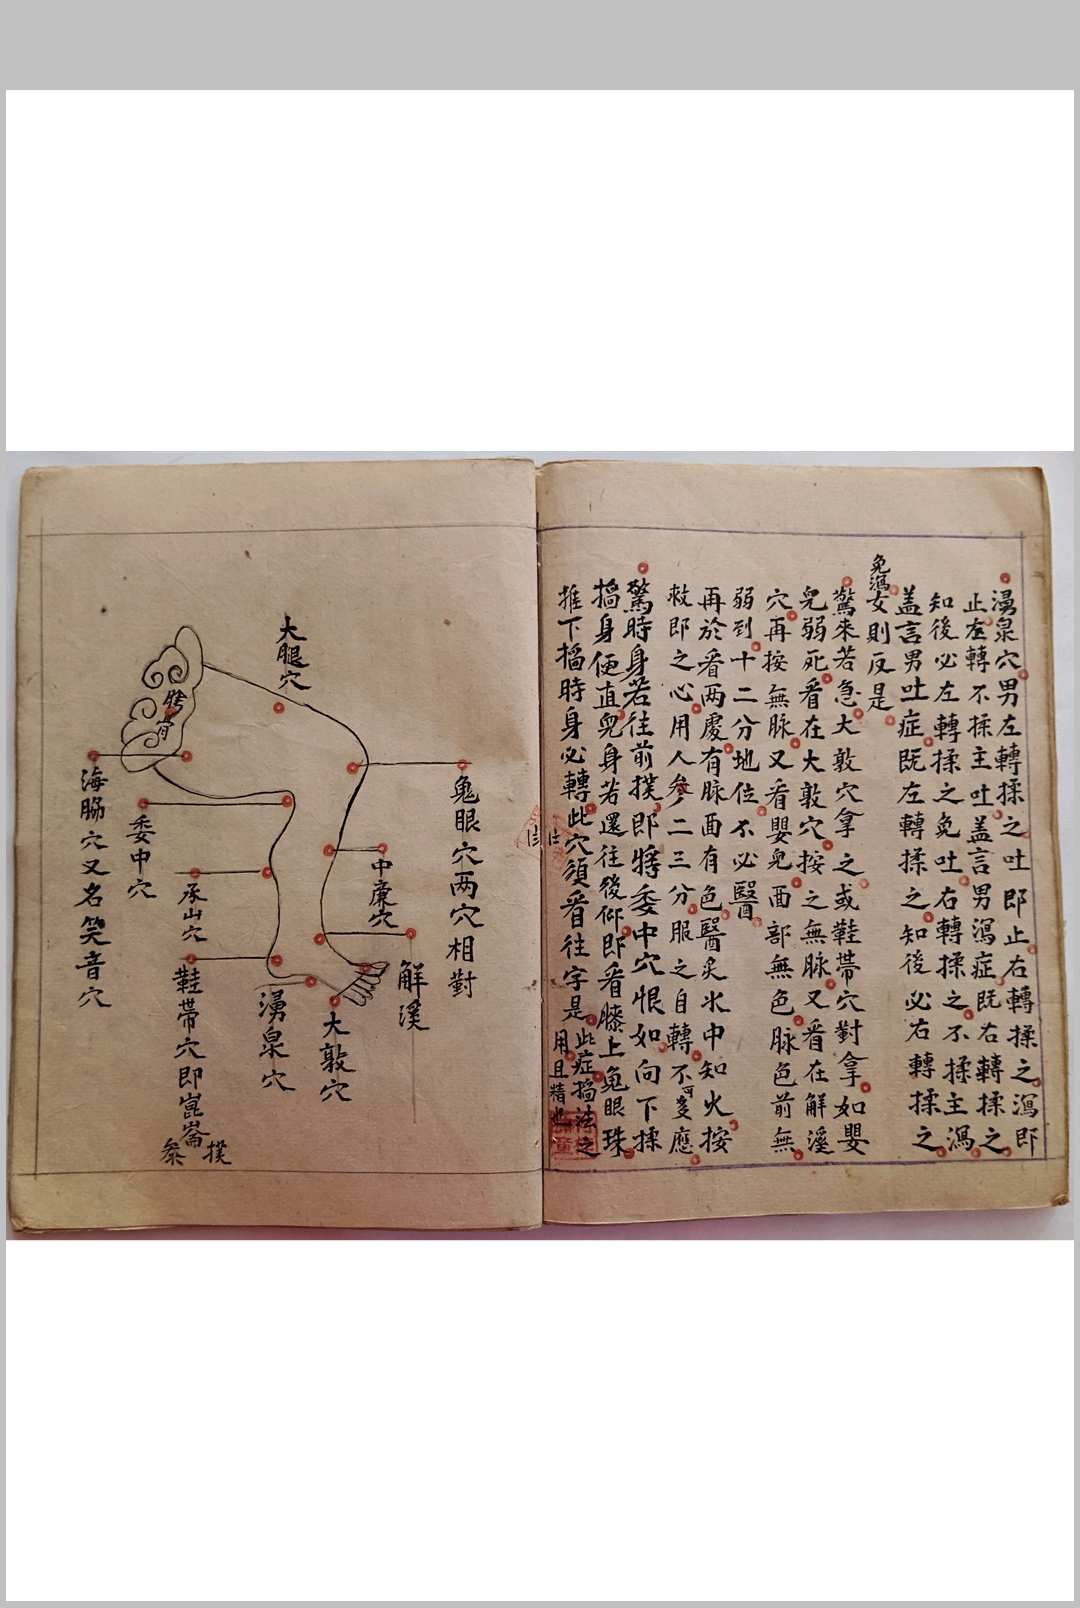 湧泉穴男左轉揉之吐即止右轉揉之瀉即
止左轉不揉主吐盖言男瀉症既右轉揉之
知後必左轉揉之免吐右轉揉之不揉主瀉
盖言男吐症既左轉揉之知後必右轉揉之
免瀉女則反是
驚來若急大敦穴拿之或鞋帶穴對拿如嬰
兒弱死看在大敦穴按之無脉又看在解溪
穴再按無脉又看嬰兒面部無色脉色前無
弱到十二分地位不必醫
再於看两處有脉面有色醫炙氷中知火按
救即之心用人參二三分服之自轉不可多應
驚時身若往前撲即將委中穴恨如向下揉
搐身便直兒身若還往後仰即看膝上鬼眼珠
推下搐時身必轉此穴須看往字是此症搐法之
用且精也
大腿穴
胯骨
海膓穴又名笑音穴
委中穴
承山穴
鞋帶穴即崑崙
撲參
湧泉穴
大敦穴
解溪
中廉穴
鬼眼穴两穴相對